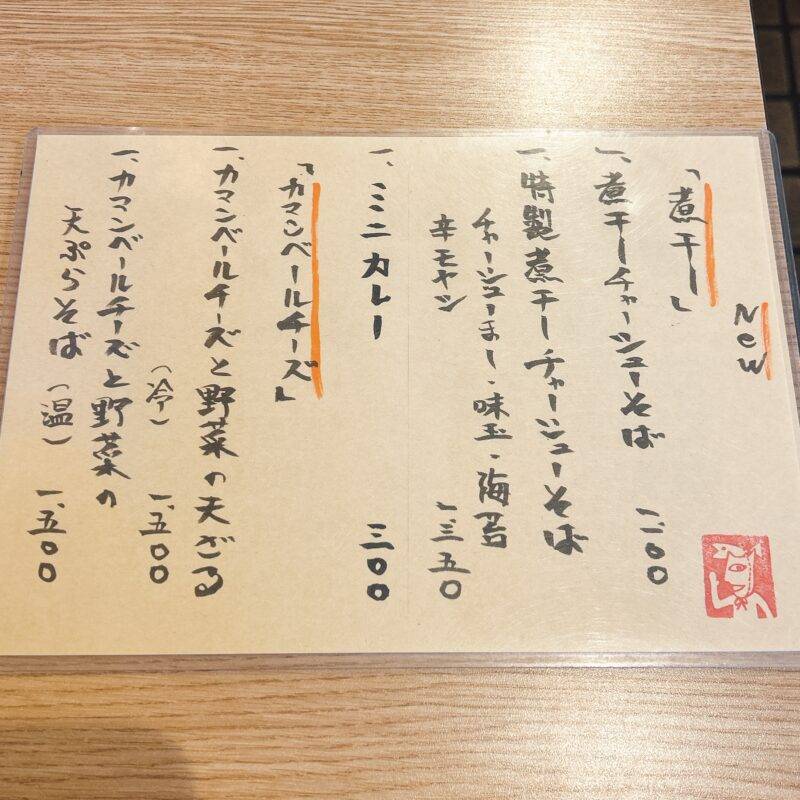 New
「煮干し」
一、煮干しチャーシューそば
一、一〇〇
一、特製煮干しチャーシューそば
チャーシューまし・味玉・海苔
辛モヤシ
一、三五〇
一、ミニカレー 三〇〇
「カマンベールチーズ」
一、カマンベールチーズと野菜の天ざる
(冷) 一、五〇〇
一、カマンベールチーズと野菜の
天ぷらそば (温) 一、五〇〇